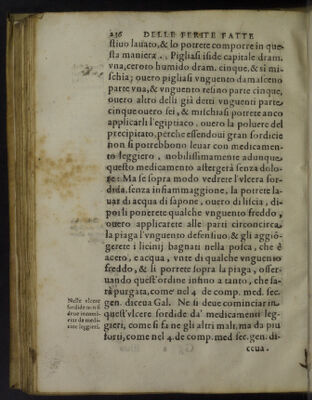 236 DELLE FERITE FATTE
stiuo lauato, & lo potrete comporre in que
sta maniera. Pigliasi iside capitale dram.
vna, ceroto humido dram. cinque, & si mi-
schia; ouero pigliasi vnguento damasceno
parte vna, & vnguento resino parte cinque,
ouero altro delli già detti vnguenti parte
cinque ouero sei, & mischiasi potrete anco
applicarli l'egiptiaco, ouero la poluere del
precipitato, perche essendoui gran sordicie
non si potrebbono leuar con medicamen-
to leggiero, nobilissimamente adunque
questo medicamento astergerà senza dolo-
re: Ma se sopra modo vedrete l'vlcera sor-
dida, senza infiammaggione, la potrete la-
uar di acqua di sapone, ouero di liscia, di
poi li ponerete qualche vnguento freddo,
ouero applicarete alle parti circoncirca
la piaga l'vnguento defensiuo, & gli aggiō-
gerete i licinij bagnati nella posca, che è
aceto, e acqua, vnte di qualche vnguento
freddo, & li porrete sopra la piaga, osser-
uando quest'ordine insino a tanto, che sa-
rà purgata, come nel 4. de comp. med. sec.
gen. diceua Gal. Ne si deue cominciar in
quest'vlcere sordide da' medicamenti leg-
gieri, come si fa ne gli altri mali, ma da piu
forti, come nel 4. de comp. med sec. gen. di-
ceua.
Nelle vlcere
sordide non si
deue incomin-
ciar da medi-
cine leggieri.